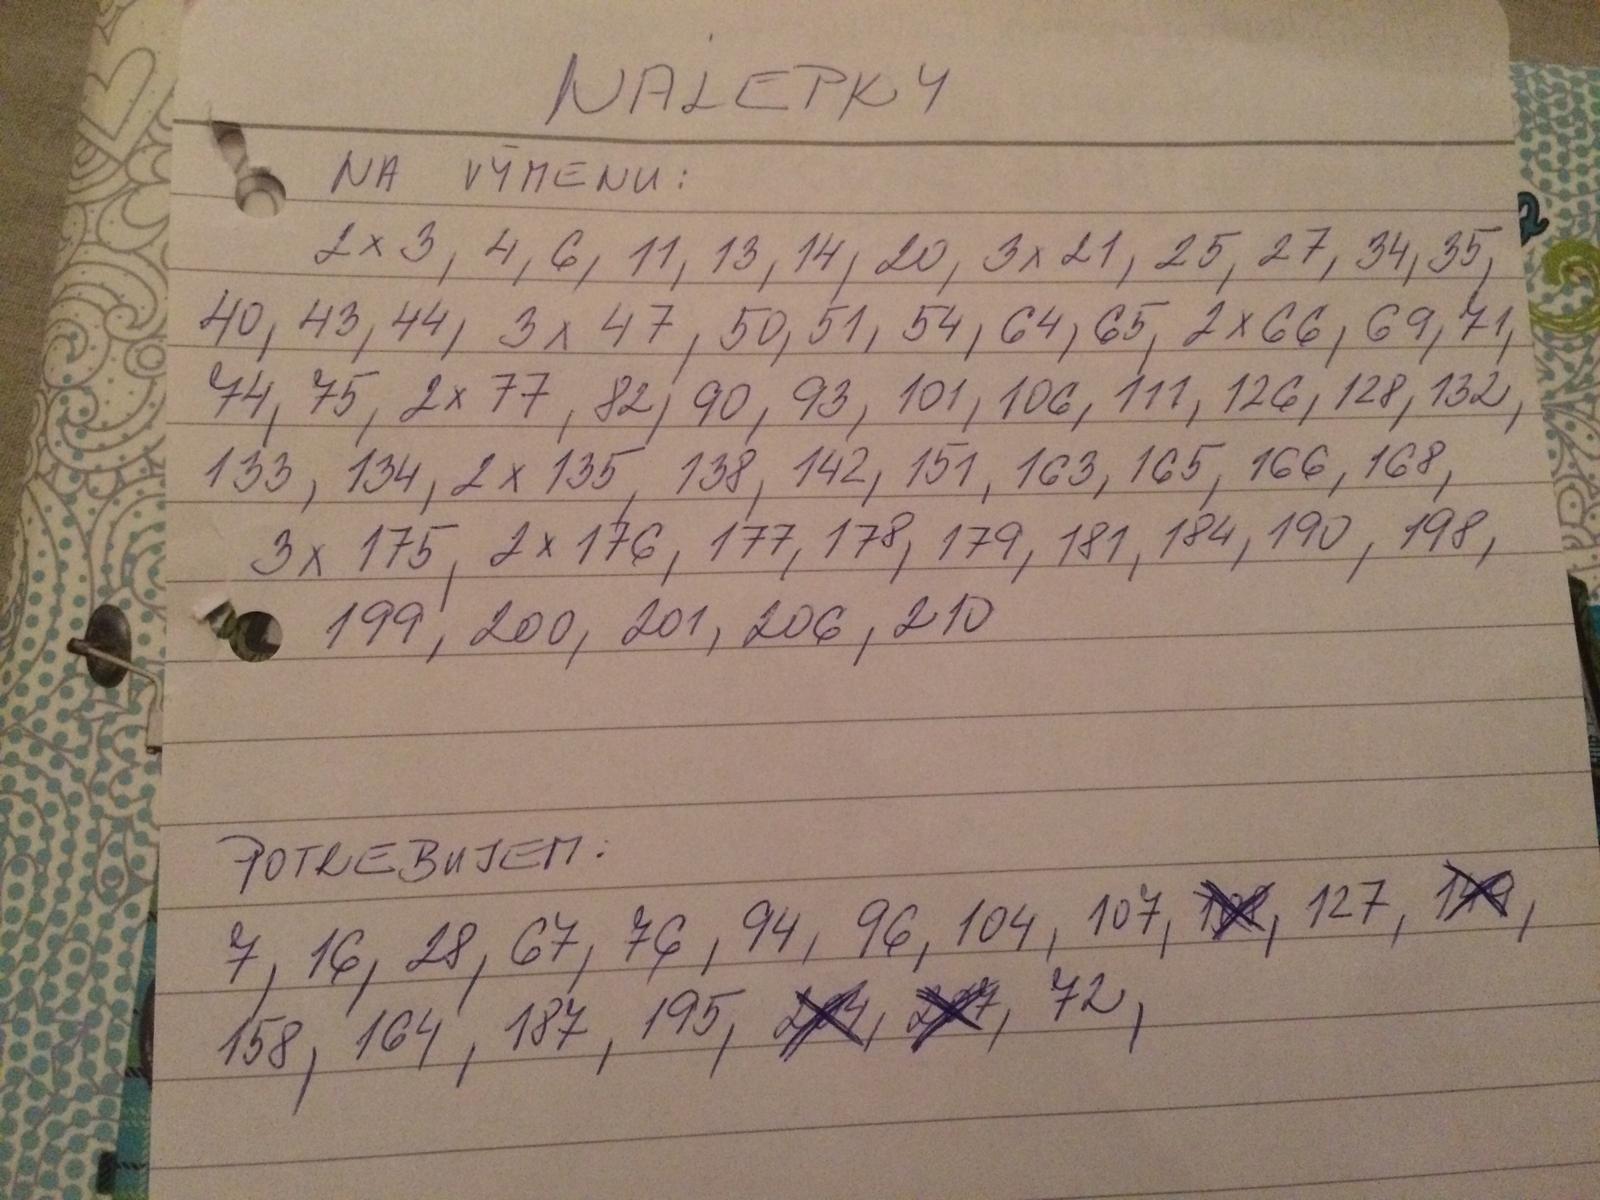 NÁLEPKY
NA VÝMENU:
2x3, 4, 6, 11, 13, 14, 20, 3x21, 25, 27, 34, 35,
40, 43, 44, 3x 47, 50, 51, 54, 64, 65, 2x66, 69, 71,
74, 75, 2x 77, 82, 90, 93, 101, 106, 111, 126, 128, 132,
133, 134, 2x 135, 138, 142, 151, 163, 165, 166, 168,
3x 175, 2x176, 177, 178, 179, 181, 184, 190, 198,
199, 200, 201, 206, 210
POTREBUJEM:
7, 16, 28, 67, 76, 94, 96, 104, 107, 127,
158, 164, 187, 195, 72,